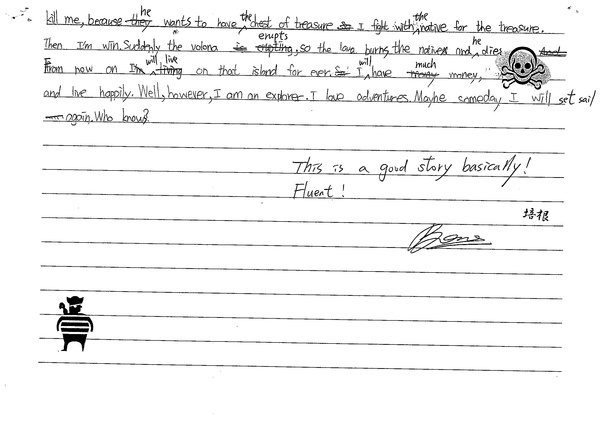 kill me, because they he wants to have the chest of treasure so I fight with the native for the treasure.
Then I'm win. Suddenly the volcna is erupting erupts, so the lava burns the natives and he dies and
From now on I'm will living live on that island for ever. so I will have many much money,
and live happily. Well, however, I am an explorer. I love adventures. Maybe someday I will set sail
again. Who knows?
This is a good story basically!
Fluent!
培根